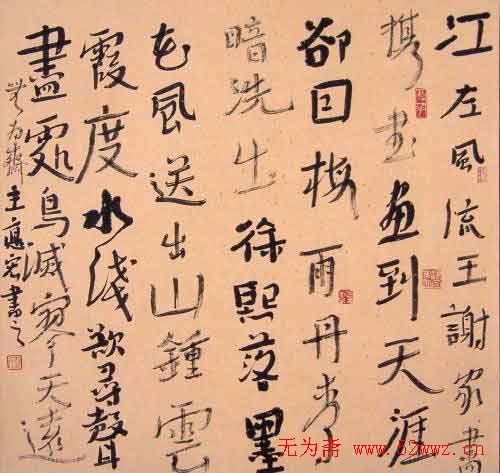 江左風流王謝家盡
携書畫到天涯
卻因梅雨丹青
暗洗出徐熙落墨
花風送出山鐘雲
霞度水淺欲尋聲
盡處鳥滅寥天遠
無為齋主應宏書之
无为斋:www.52wwz.cn